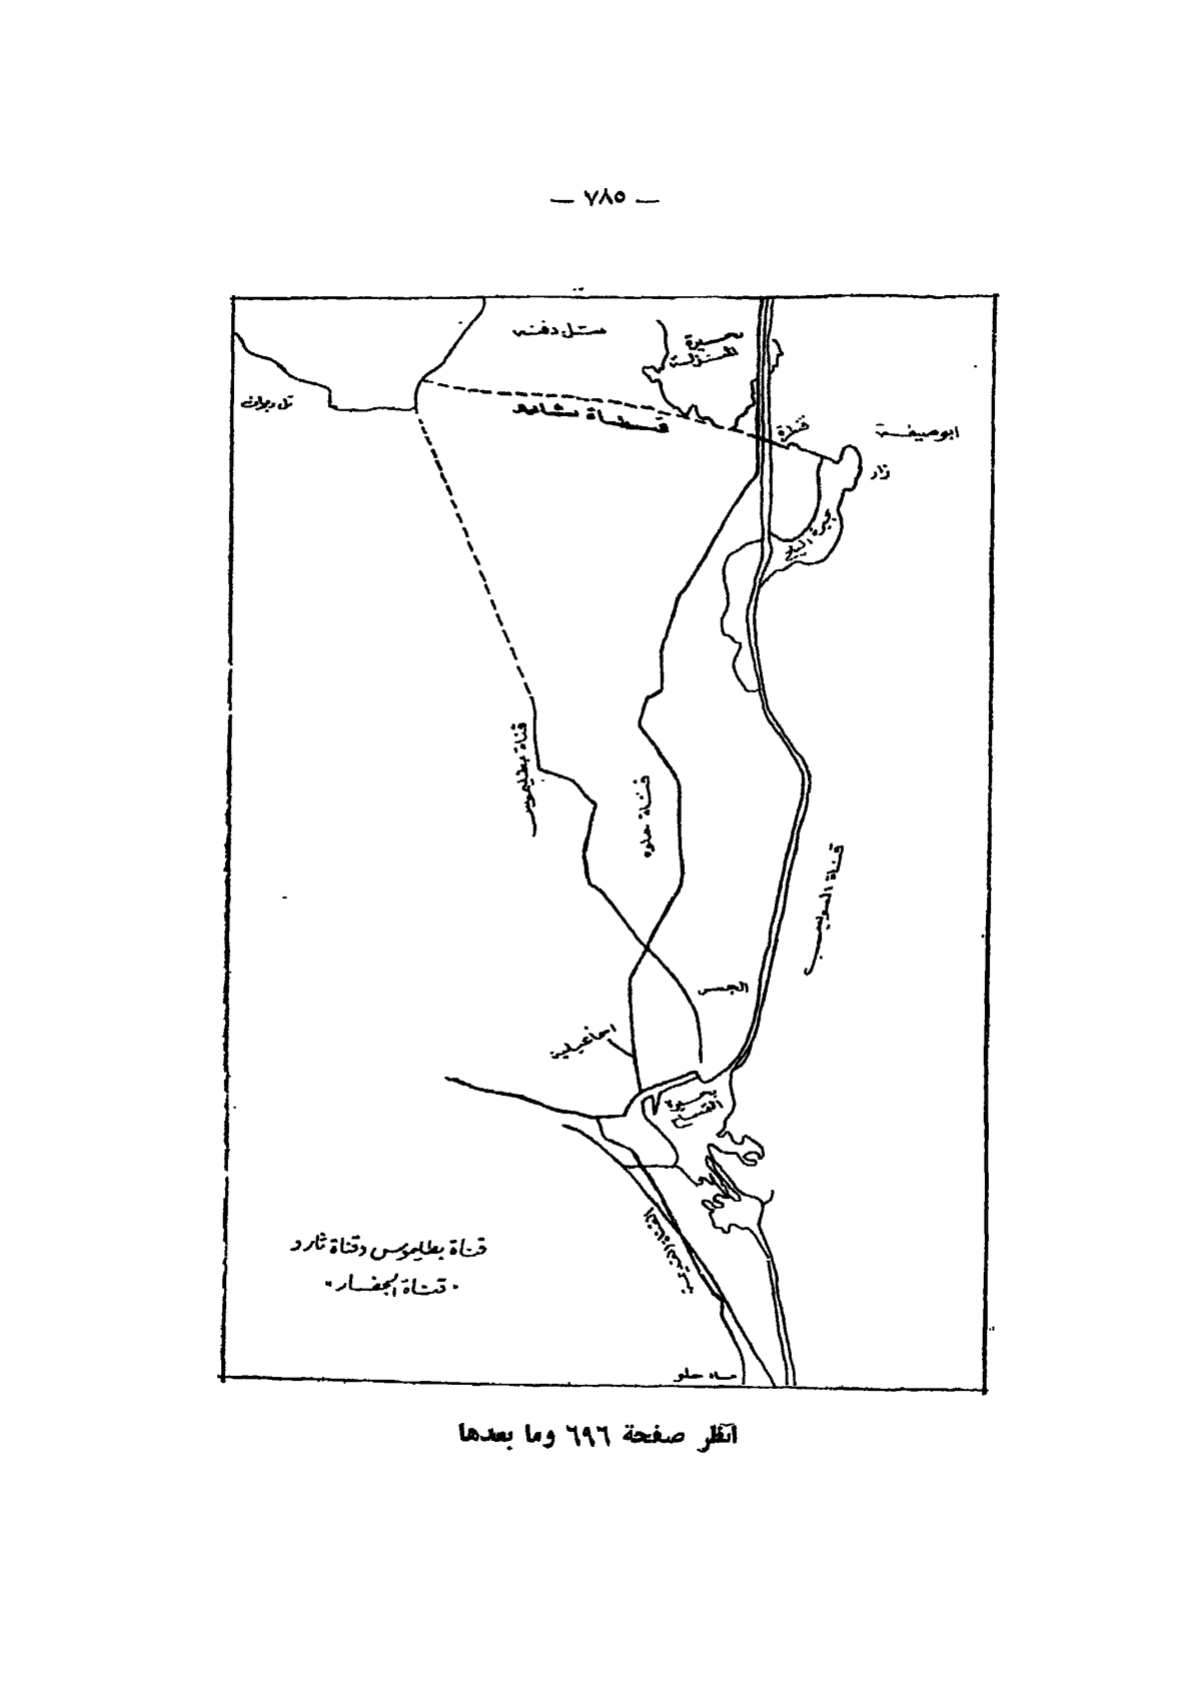 — ٧٨٥ —
تل دفنه
بحيرة
المنزلة
تل
قنطرة
ابوصيفة
ثار
بحيرة البلح
قناة بطليموس
قناة حلوه
قناة السويس
الجسر
اسماعيلية
بحيرة
التمساح
قناة بطليموس وقناة ثارو
"قناة الجفار"
مياه حلو
انظر صفحة ٦٩٦ وما بعدها